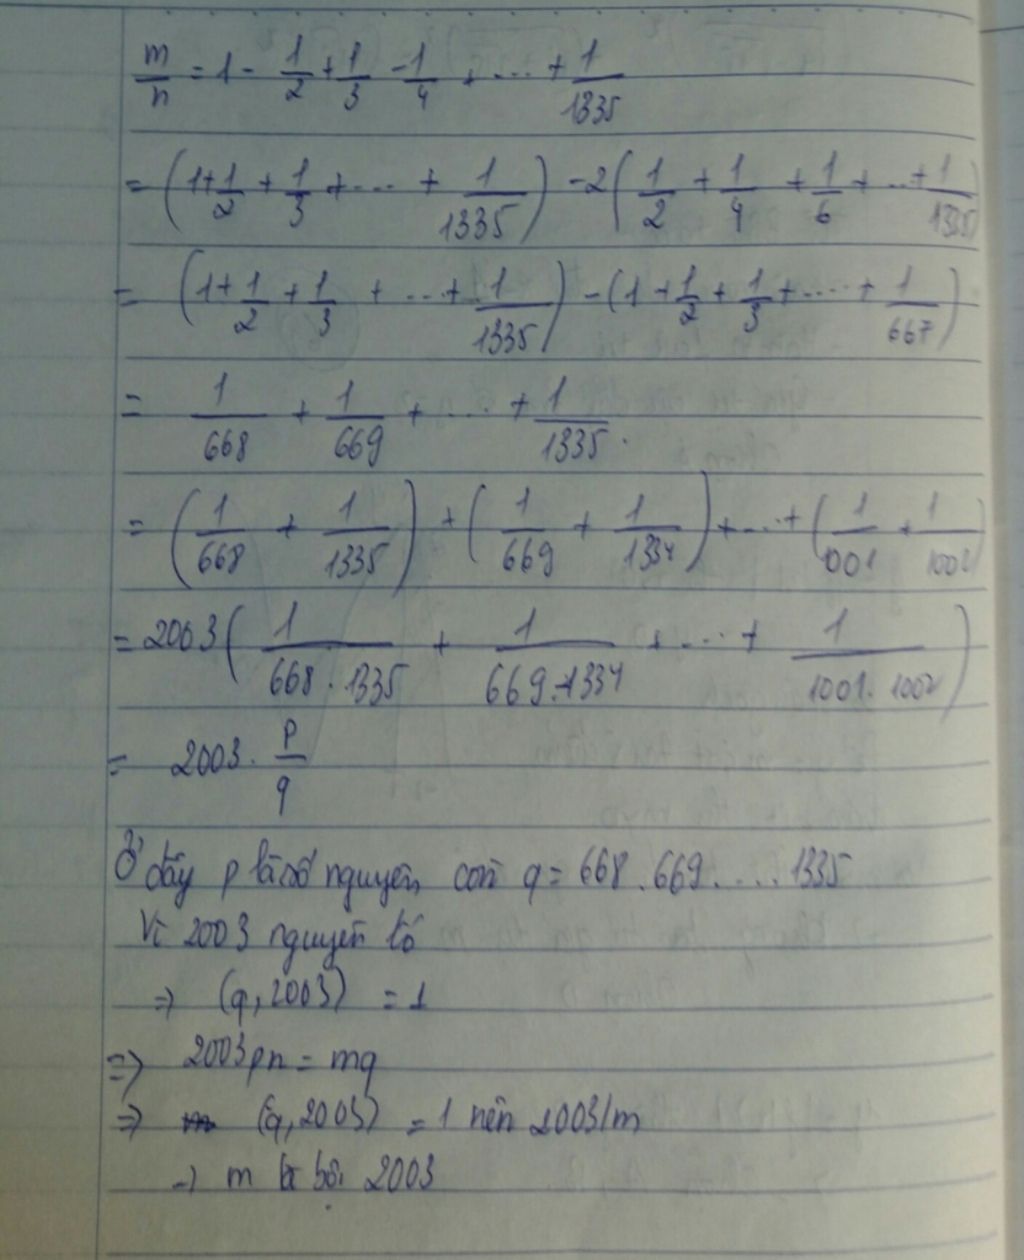 m/n = 1 - 1/2 + 1/3 - 1/4 + ... + 1/1335
= (1 + 1/2 + 1/3 + ... + 1/1335) - 2(1/2 + 1/4 + 1/6 + ... + 1/1335)
= (1 + 1/2 + 1/3 + ... + 1/1335) - (1 + 1/2 + 1/3 + ... + 1/667)
= 1/668 + 1/669 + ... + 1/1335.
= (1/668 + 1/1335) + (1/669 + 1/1334) + ... + (1/1001 + 1/1002)
= 2003(1/668.1335 + 1/669.1334 + ... + 1/1001.1002)
= 2003. p/q
Ở đây p là số nguyên, còn q = 668.669....1335
Vì 2003 nguyên tố
=> (q, 2003) = 1
=> 2003pn = mq
=> (q, 2003) = 1 nên 2003/m
-> m là bội 2003